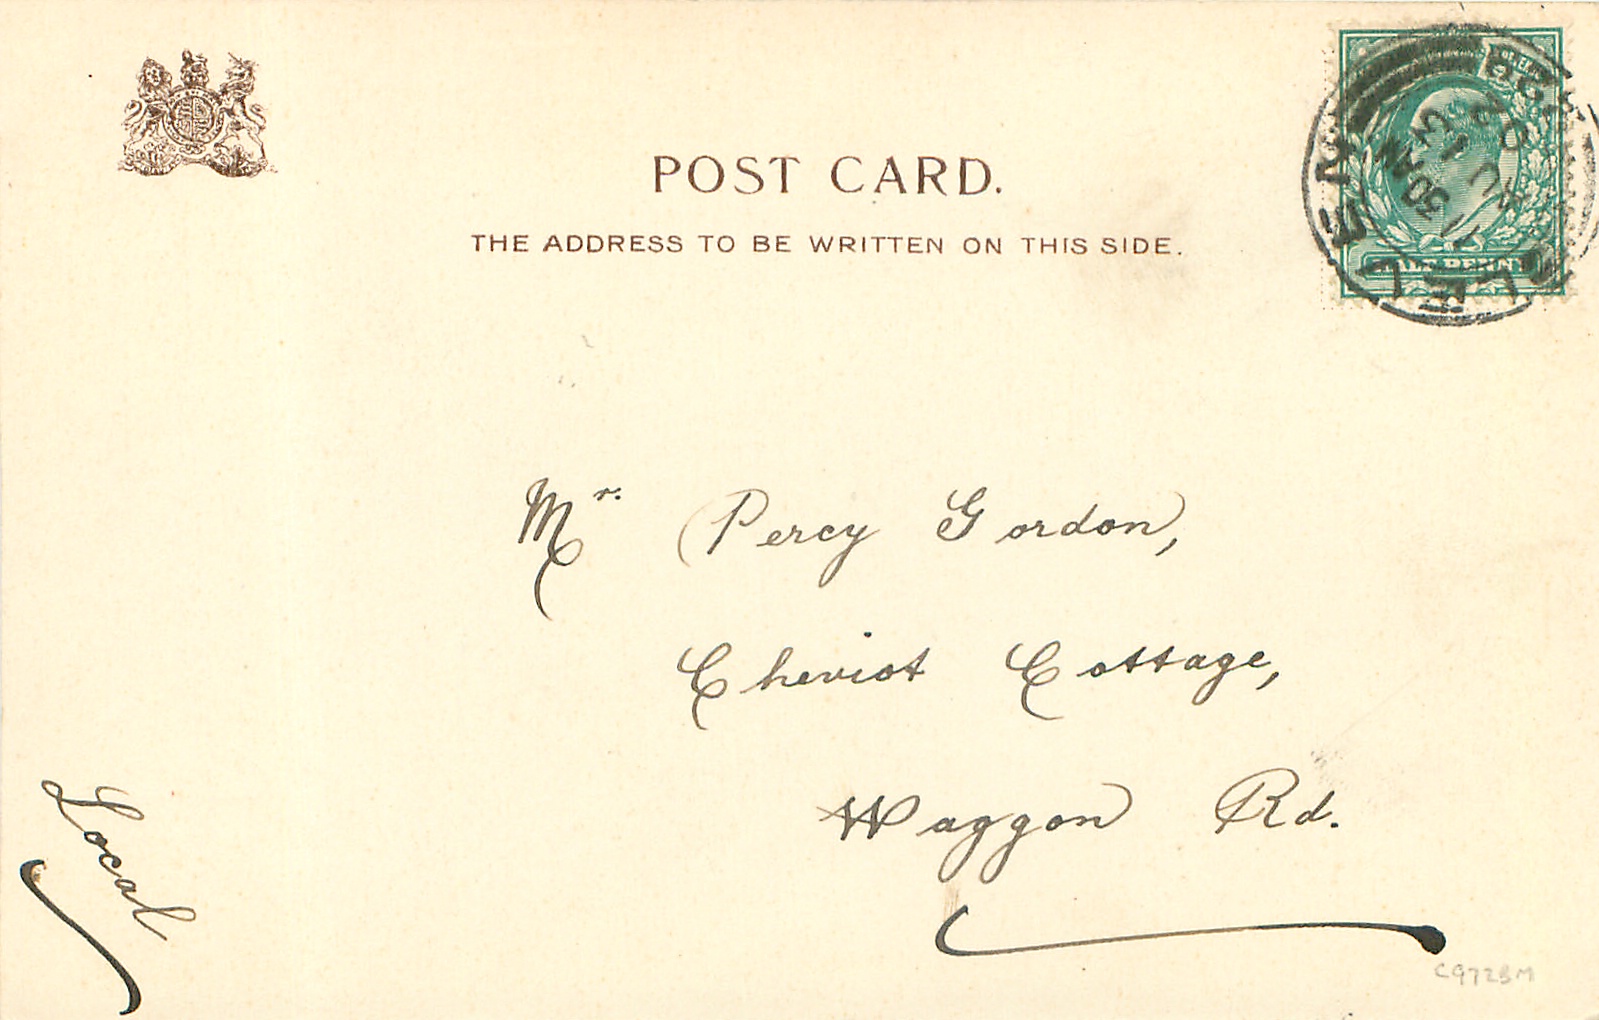 POST CARD.
THE ADDRESS TO BE WRITTEN ON THIS SIDE.
Mr. Percy Gordon,
Cheviot Cottage,
Waggon Rd.
Local
C9723M